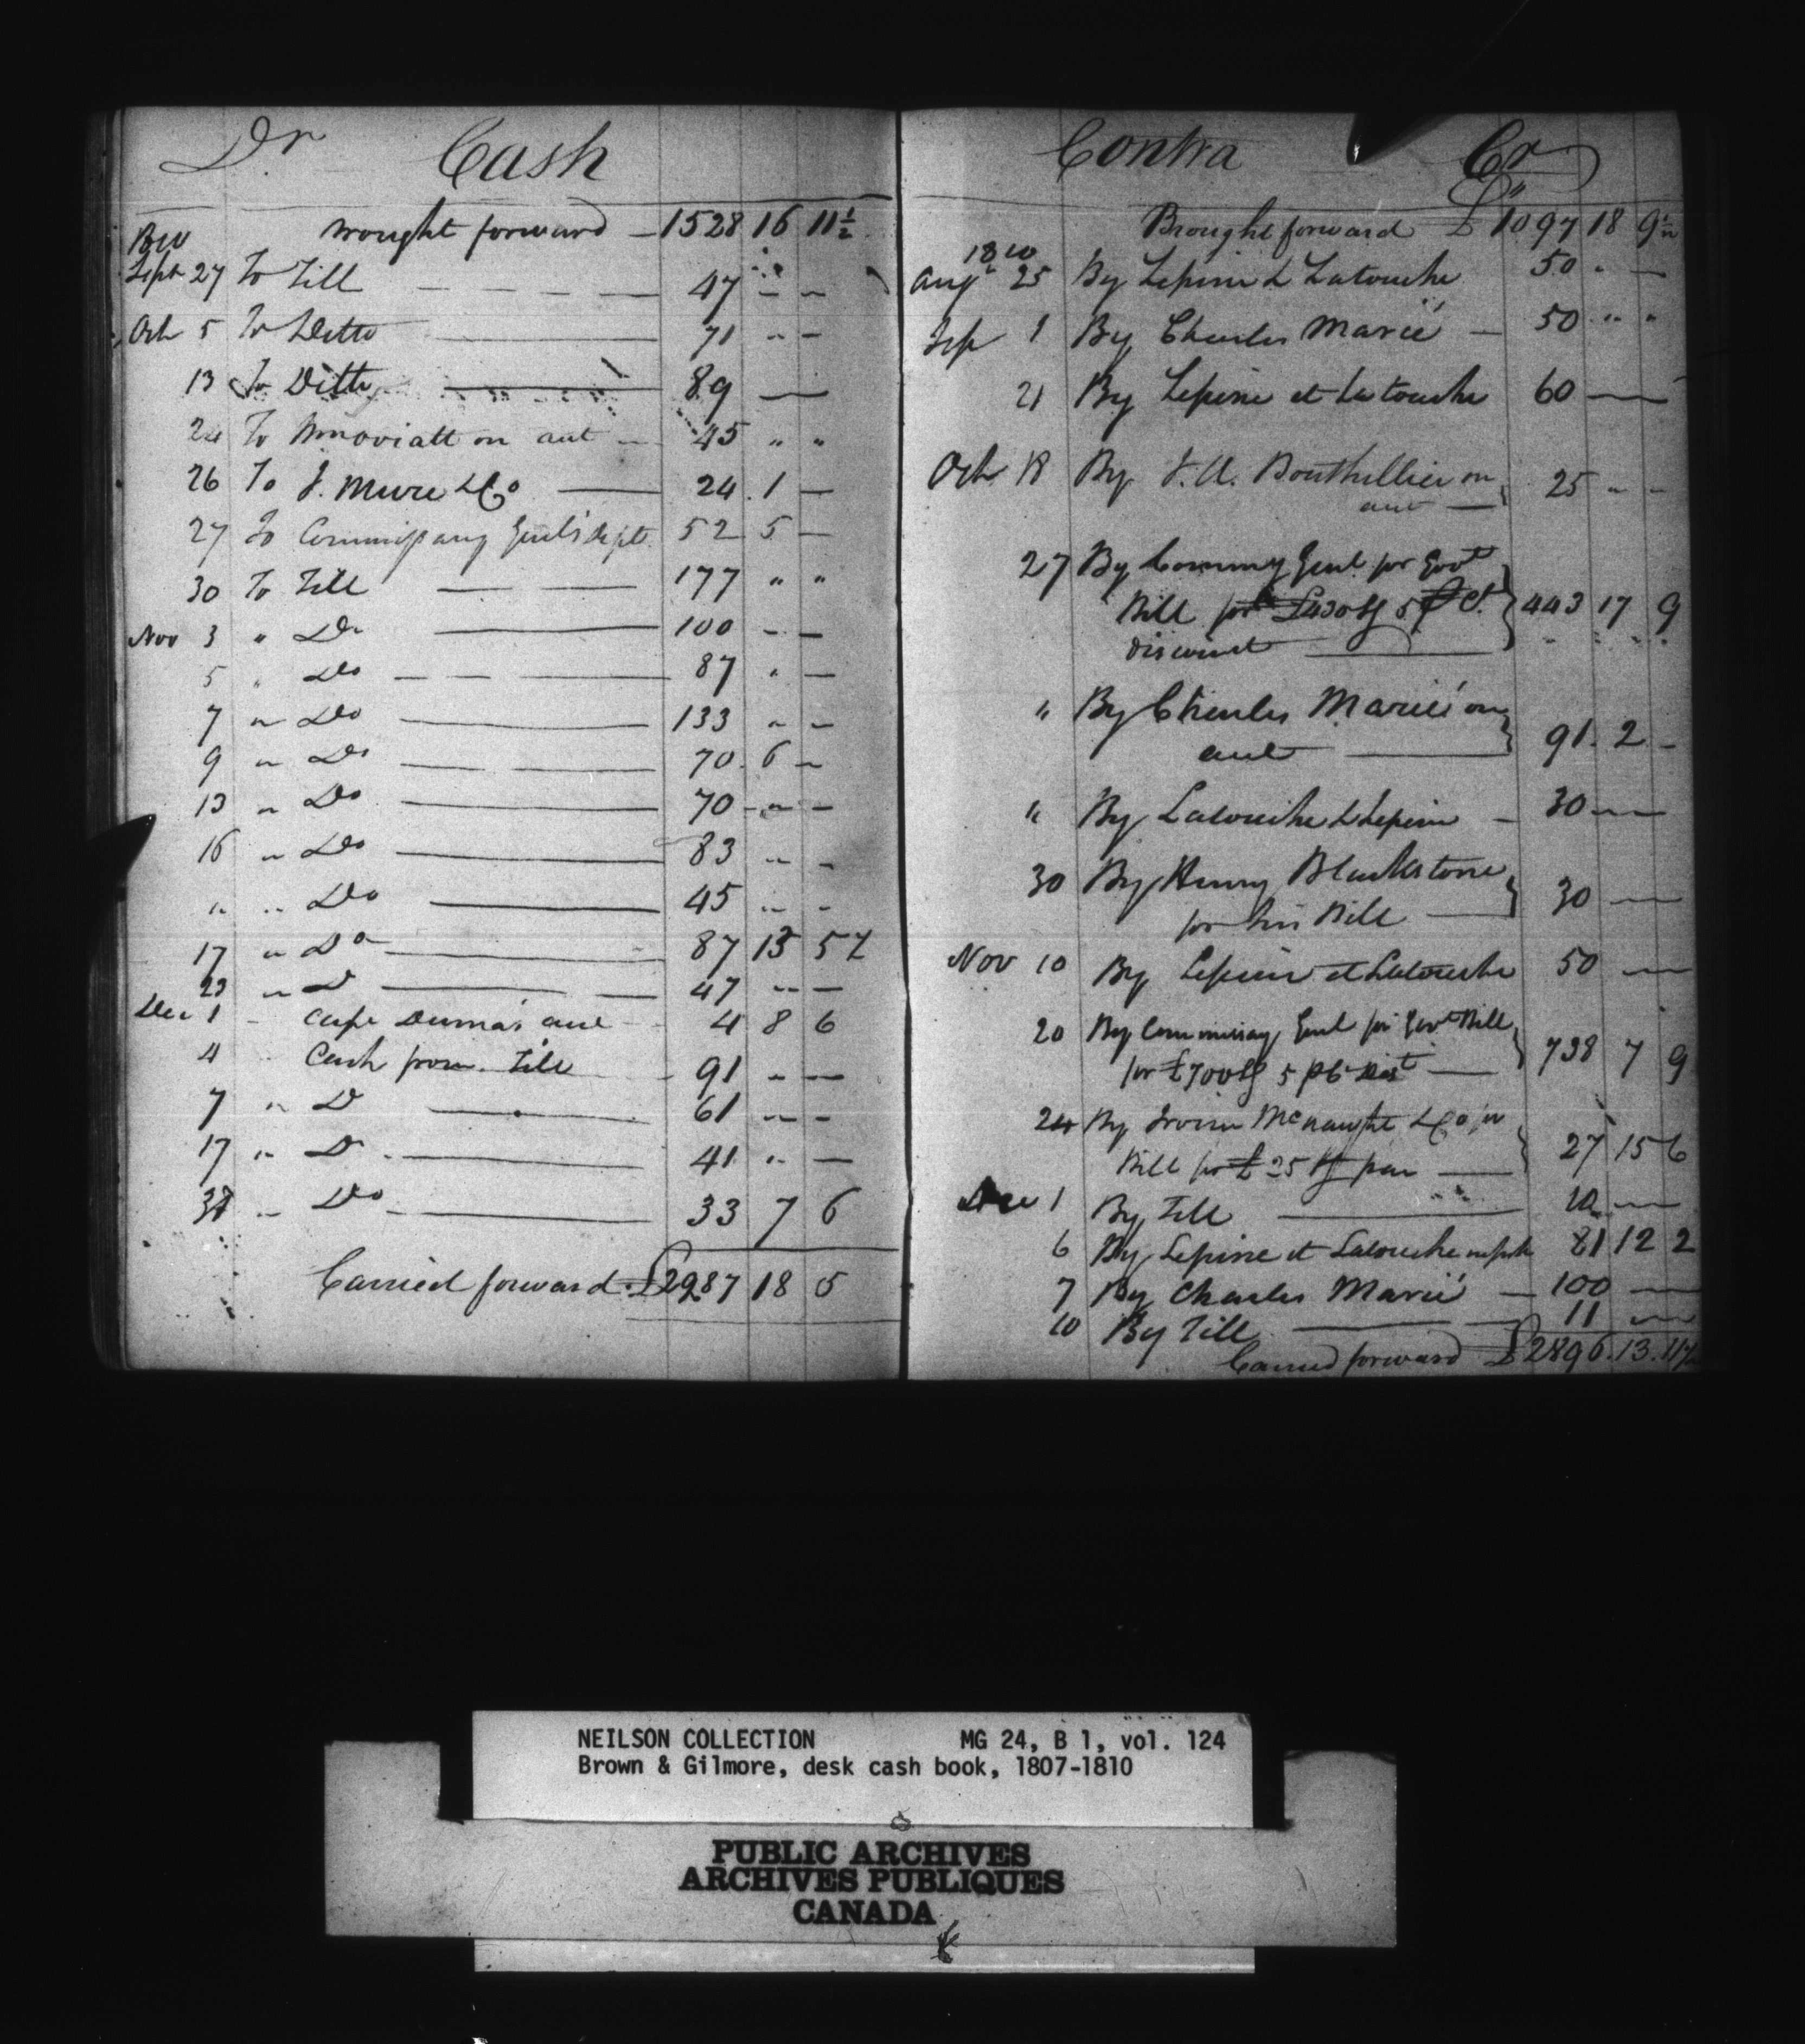 Dr Cash
brought forward 1528 16 11½
Sept 27 To Till 47 " "
Oct 5 To Ditto 71 " —
13 To Ditto 89 —
24 To on acct 45 " "
26 To J. Mure & Co 24 1 —
27 To Commissary Genl's dept. 52 5 —
30 To Till 177 " "
Nov 3 " Do 100 - —
5 " Do 87 " —
7 " Do 133 " —
9 " Do 70 6 —
13 " Do 70 - " —
16 " Do 83 " -
" " Do 45 " -
17 " Do 87 13 5½
23 " D 47 " —
Dec 1 - Dumas acct 4 8 6
4 Cash from Till 91 " —
7 " D 61 " -
17 " D 41 " —
" Do 33 7 6
Carried forward £2987 18 5
Contra Cr
Brought forward £1097 18 9½
1810
Augt 25 By Lepine & Latouche 50 " —
Sep 1 By Charles Marié — 50 " "
21 By Lepine et Latouche 60 —
Oct 18 By J. A. Bouthillier on
acct — 25 " "
27 By Commy Genl for Govt
Bill for £430 Stg 5 P Ct.
discount 443 17 9
" By Charles Marié on
acct 91 2 -
" By Latouche & Lepine - 30 —
30 By Henry Blackstone
for his Bill 30 —
Nov 10 By Lepine et Latouche 50 —
20 By Commissary Genl for Govt Bill
for £700 Stg 5 pC Dist 738 7 9
24 By Irvine McNaught & Co for
Bill for £25 Stg par 27 15 6
Dec 1 By Till 10 —
6 By Lepine et Latouche 81 12 2
7 By Charles Marié — 100 —
10 By Till 11 —
Carried forward £2896 13 11½
NEILSON COLLECTION MG 24, B 1, vol. 124
Brown & Gilmore, desk cash book, 1807-1810
PUBLIC ARCHIVES
ARCHIVES PUBLIQUES
CANADA